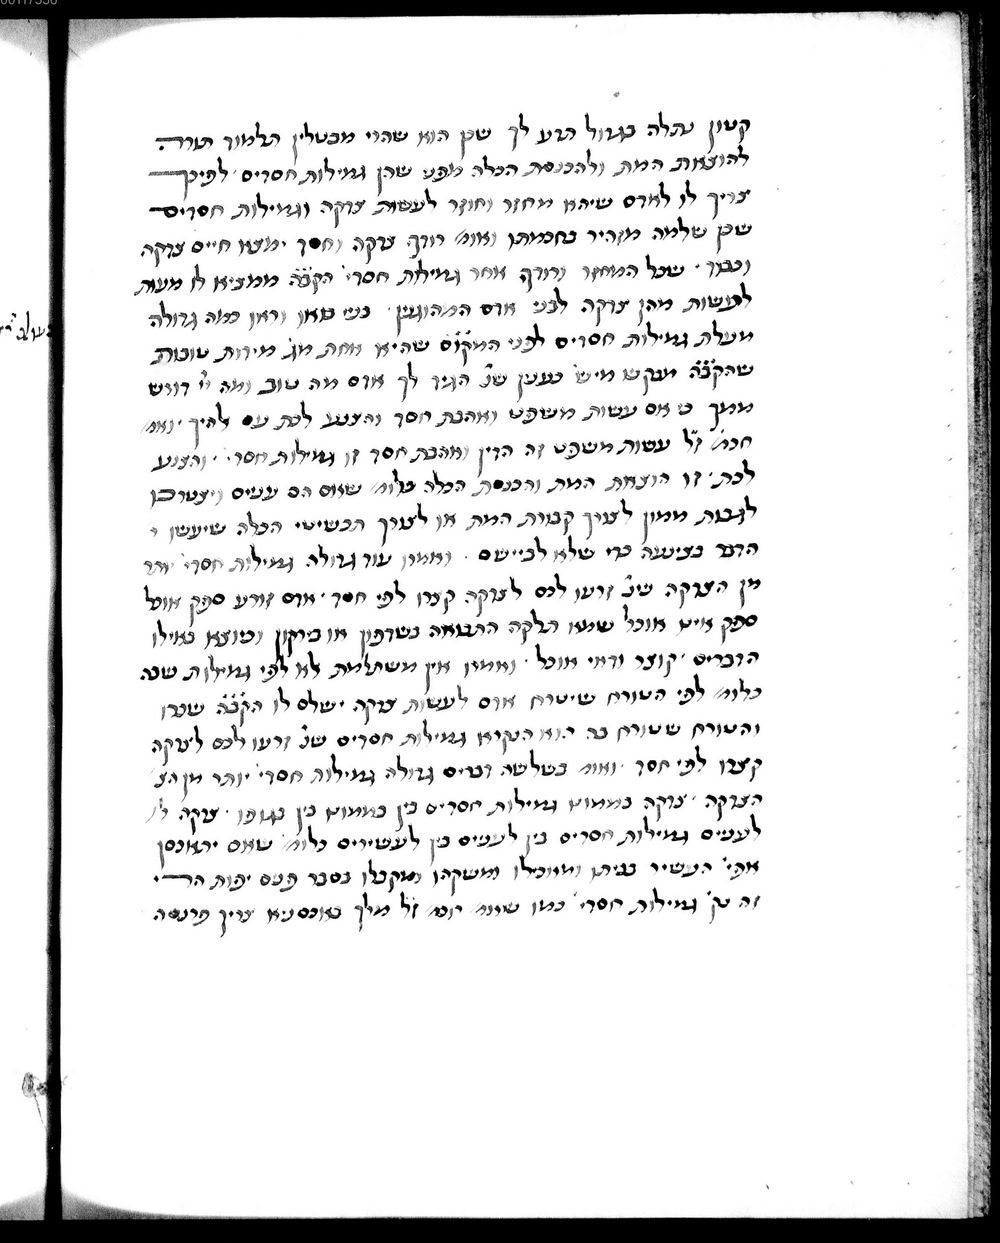 קטון נתלה בגדול תדע לך שכן הוא שהרי מבטלין תלמוד תורה
להוצאת המת ולהכנסת הכלה מפני שהן גמילות חסדים לפיכך
צריך לו לאדם שיהא מחזר וחוזר לעשות צדקה וגמילות חסדים
שכן שלמה מזהיר בחכמתו ואומ' רודף צדקה וחסד ימצא חיים צדקה
וכבוד שכל המחזר ורודף אחר גמילות חסדי' הקב"ה ממציא לו מעות
לעשות מהן צדקה לבני אדם המהוגנין בוא וראו כמה גדולה
מעלת גמילות חסדים לפני המקום שהיא אחת מג' מידות טובות
שהקב"ה מבקש מיש' כענין שנ' הגיד לך אדם מה טוב ומה יי' דורש
ממך כי אם עשות משפט ואהבת חסד והצנע לכת עם אלהיך ואמ'
חכמ' ז"ל עשות משפט זה הדין ואהבת חסד זו גמילות חסדי' והצנע
לכת זו הוצאת המת והכנסת הכלה כלומ' שאם הם עניים ויצטרכו
לגבות ממון לצורך קבורת המת או לצורך תכשיטי הכלה שיעשו
הדבר בצינעה כדי שלא לביישם ואמרו עוד גדולה גמילות חסדי' יותר
מן הצדקה שנ' זרעו לכם לצדקה קצרו לפי חסד אדם זורע ספק אוכל
ספק אינו אוכל שמא תלקה התבואה בשדפון או בירקון וכיוצא באילו
הדברים קוצר ודאי אוכל ואמרו אין משתלמת לא לפי גמילות שבה
כלומ' לפי הטורח שיטרח אדם לעשות צדקה ישלם לו הקב"ה שכרו
והטורח שטורח בה הוא הנקרא גמילות חסדים שנ' זרעו לכם לצדקה
קצרו לפי חסד ואומ' בשלשה דברים גדולה גמילות חסדי' יותר מן הצ'
הצדקה צדקה בממונו גמילות חסדים בין בממונו בין בגופו צדקה
לעניים גמילות חסדים בין לעניים בין לעשירים כלומ' שאם יתאכסן
אפי' העשיר בביתו ומאכילו ומשקהו ומקבלו בסבר פנים יפות הרי
זה נק' גמילות חסדי' כמו שאמ' חכמ' ז"ל מלך באכסניא צריך פרנסה